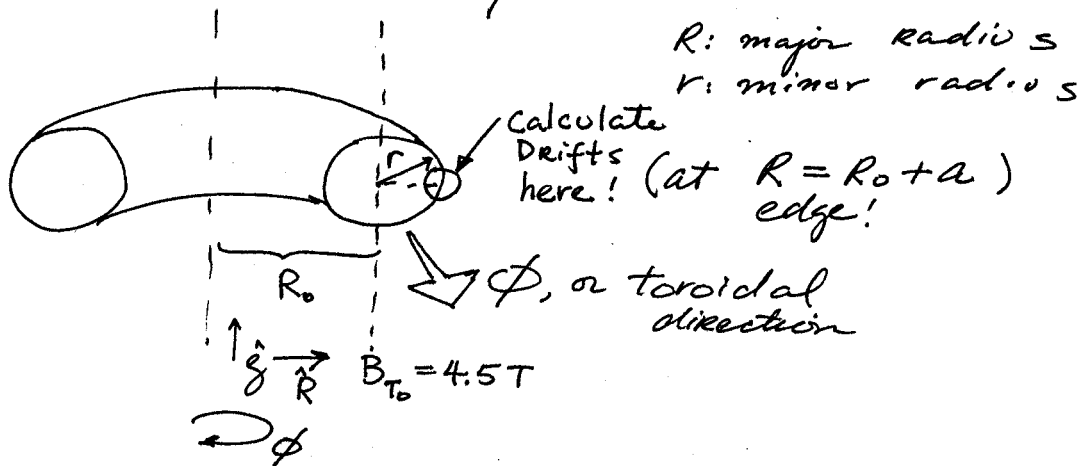 R: major Radius
r: minor radius
Calculate
Drifts
here! (at R = R₀ + a)
edge!
r
R₀
φ, or toroidal
direction
ẑ R̂ B_T₀ = 4.5 T
φ